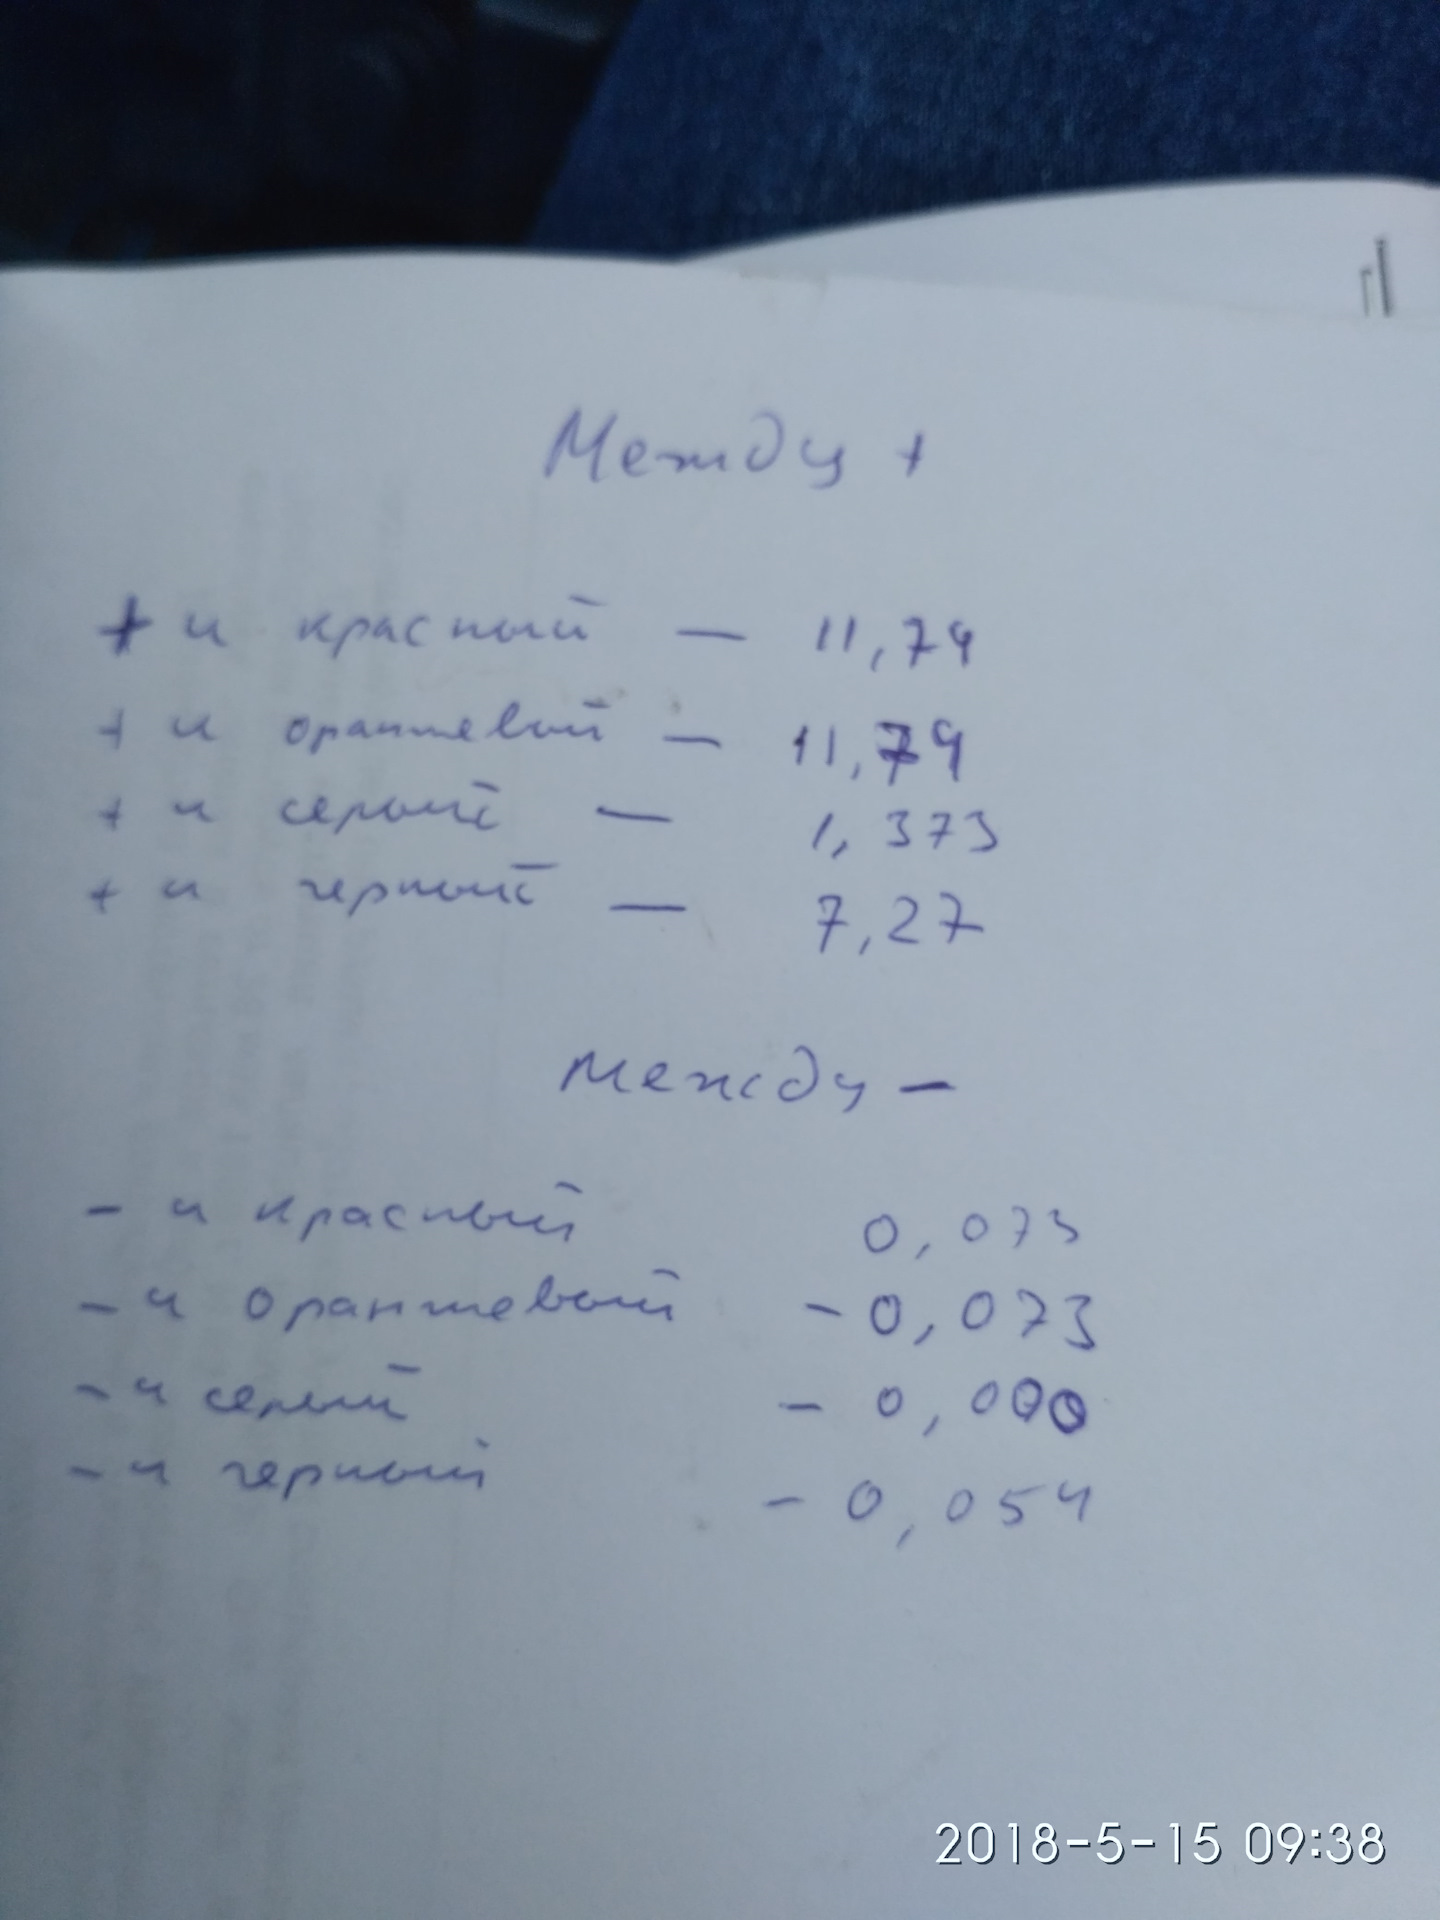 Между +
+ и красный — 11,74
+ и оранжевый — 11,79
+ и серый — 1,373
+ и черный — 7,27
Между -
- и красный 0,073
- и оранжевый - 0,073
- и серый - 0,000
- и черный - 0,054
2018-5-15 09:38